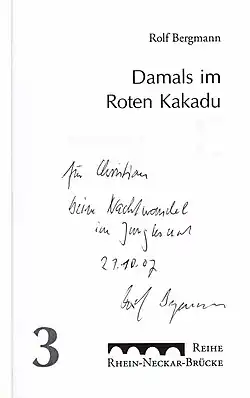 Rolf Bergmann
Damals im
Roten Kakadu
für Christian
beim Nachtwandel
im Jungbusch
27.10.07
Rolf Bergmann
3
REIHE
RHEIN-NECKAR-BRÜCKE